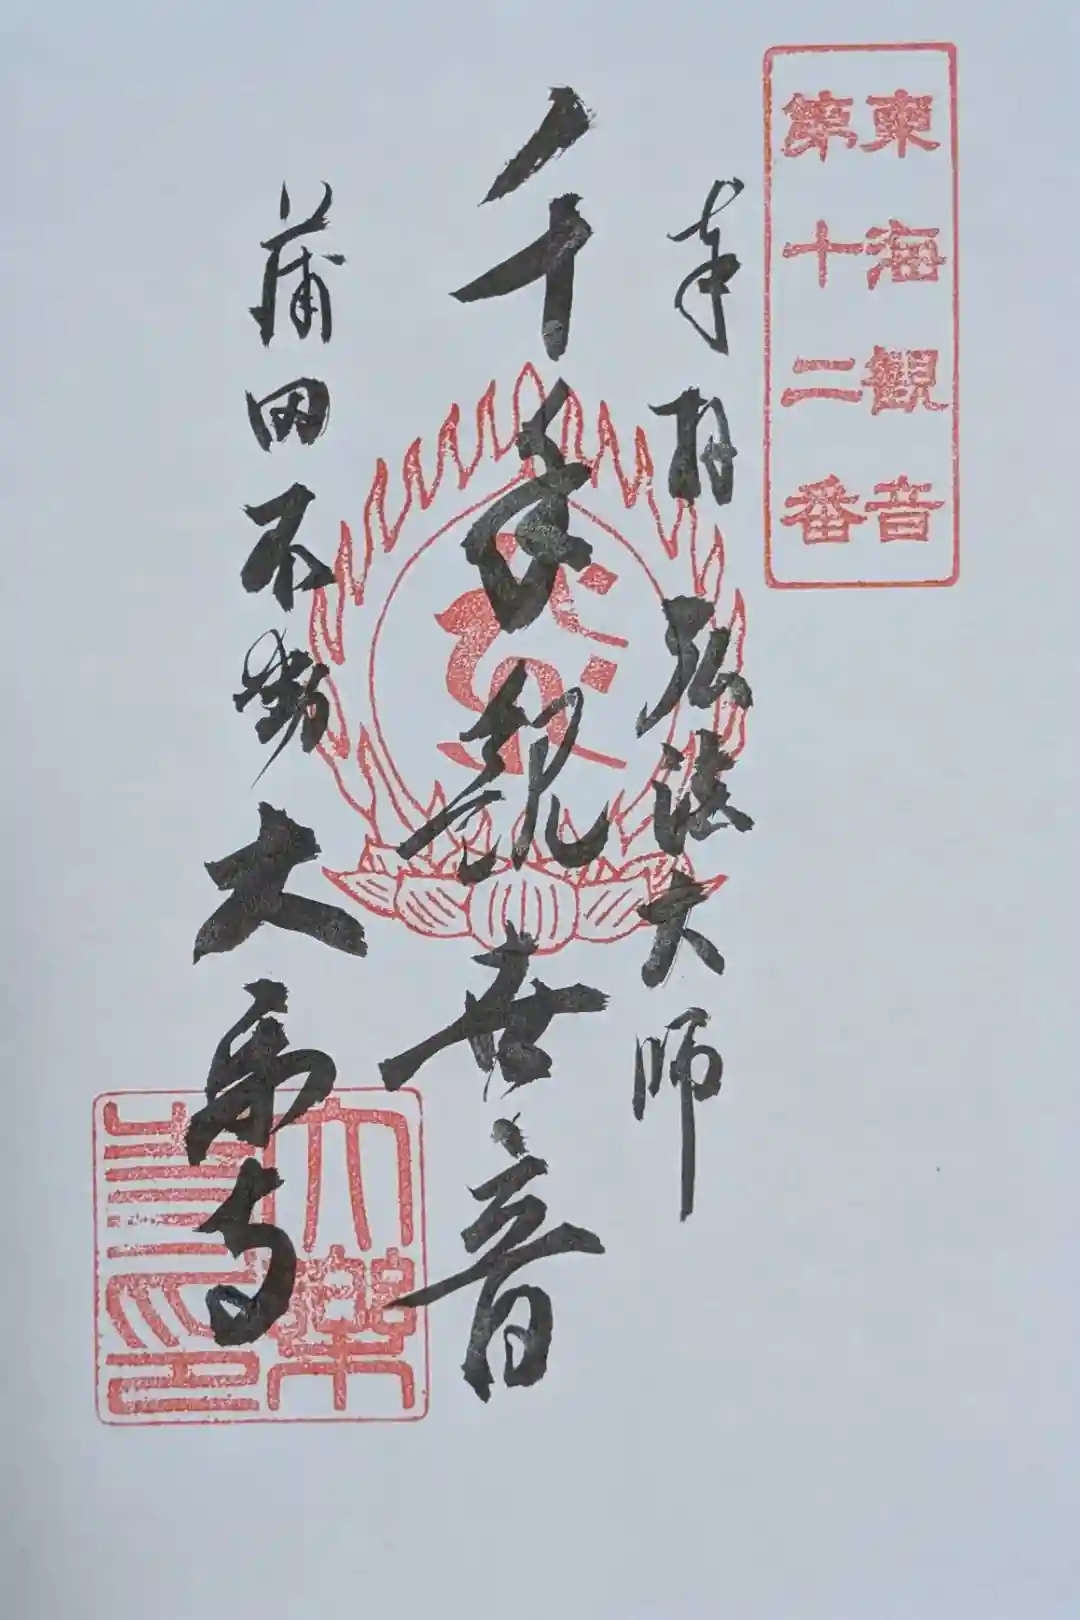 東海観音
第十二番
奉拝 弘法大師
千手観世音
蒲田不動 大楽寺
大樂